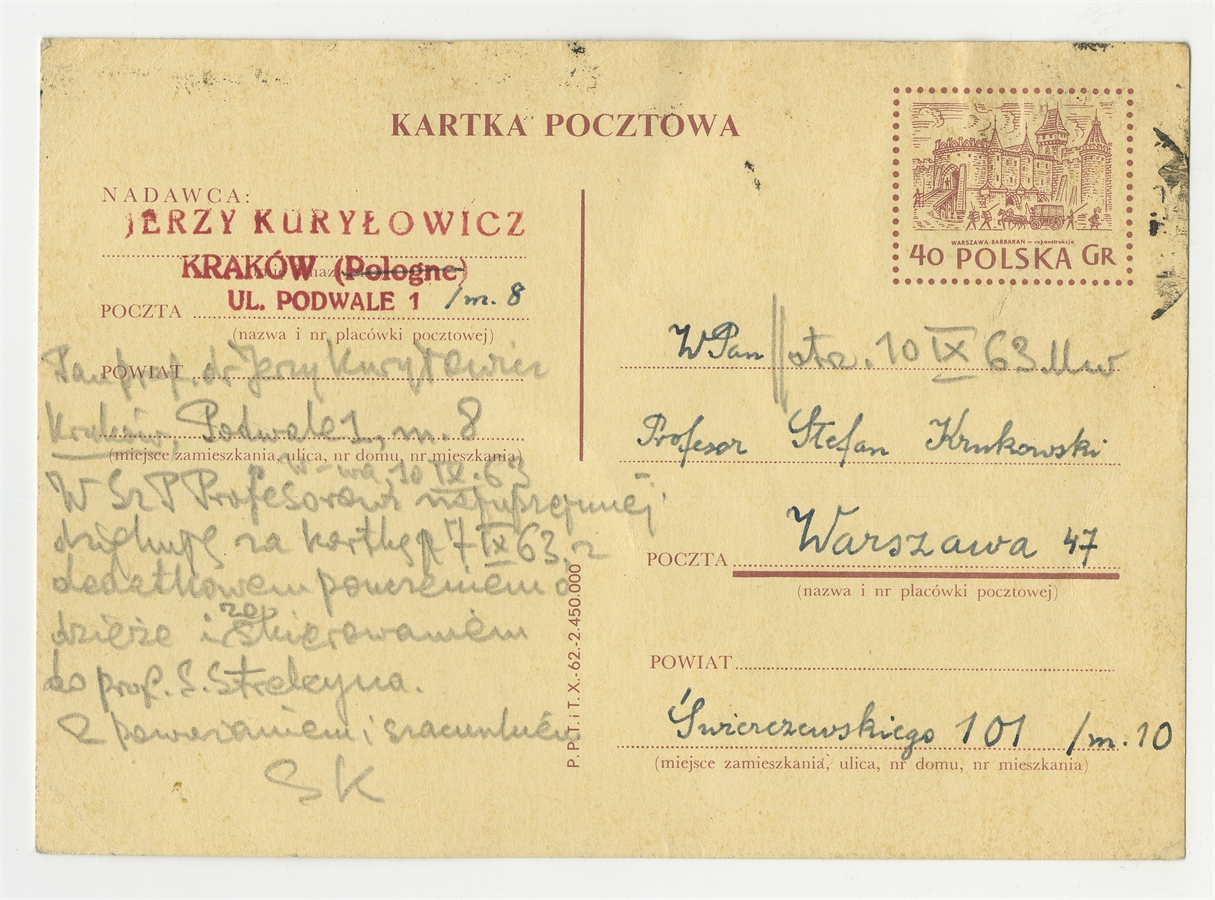 KARTKA POCZTOWA
WARSZAWA-BARBAKAN – rekonstrukcja
40 POLSKA GR
NADAWCA:
JERZY KURYŁOWICZ
KRAKÓW (Pologne)
UL. PODWALE 1 /m. 8
POCZTA
(nazwa i nr placówki pocztowej)
POWIAT
Pan prof. dr Jerzy Kuryłowicz
Kraków, Podwale 1, m. 8
(miejsce zamieszkania, ulica, nr domu, nr mieszkania)
W-wa, 10 IX. 63
W Sz P Profesorowi najuprzejmiej
dziękuję za kartkę z 7 IX 63 z
dodatkowem pouczeniem o
dzieże i za skierowaniem
do prof. S. Strelcyna.
Z poważaniem i szacunkiem
SK
P. P. T. i T. X.-62.-2.450.000
WPan
otrz. 10 IX 63. Uw
Profesor Stefan Krukowski
Warszawa 47
POCZTA
(nazwa i nr placówki pocztowej)
POWIAT
Świerczewskiego 101 /m. 10
(miejsce zamieszkania, ulica, nr domu, nr mieszkania)